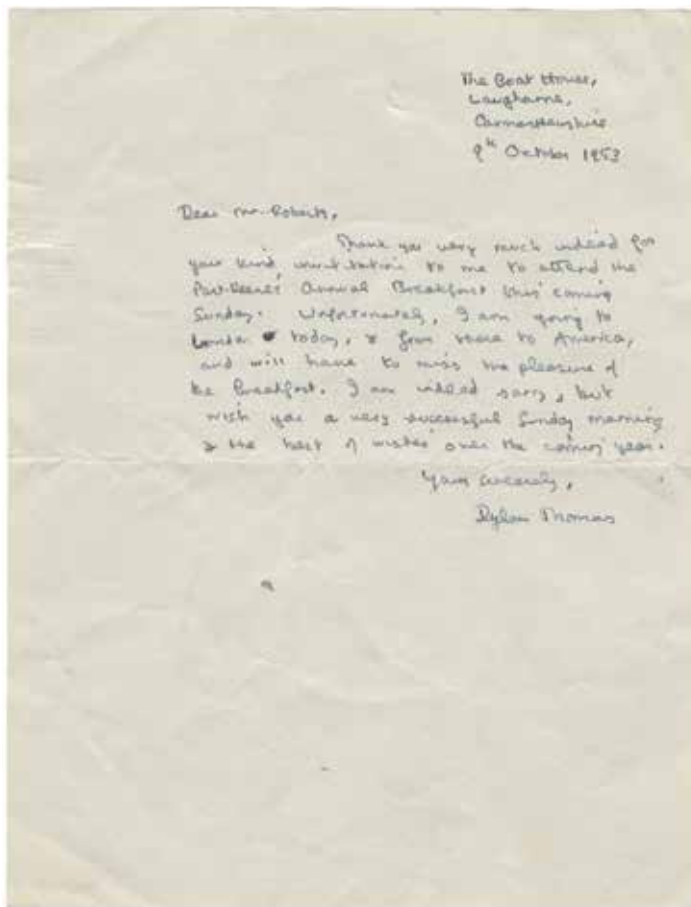 The Boat House,
Laugharne,
Carmarthenshire
9th October 1953
Dear Mr. Roberts,
Thank you very much indeed for
your kind invitation to me to attend the
Portreeve's Annual Breakfast this coming
Sunday. Unfortunately, I am going to
London today, & from there to America,
and will have to miss the pleasure of
the Breakfast. I am indeed sorry, but
wish you a very successful Sunday morning
& the best of wishes over the coming year.
Yours sincerely,
Dylan Thomas